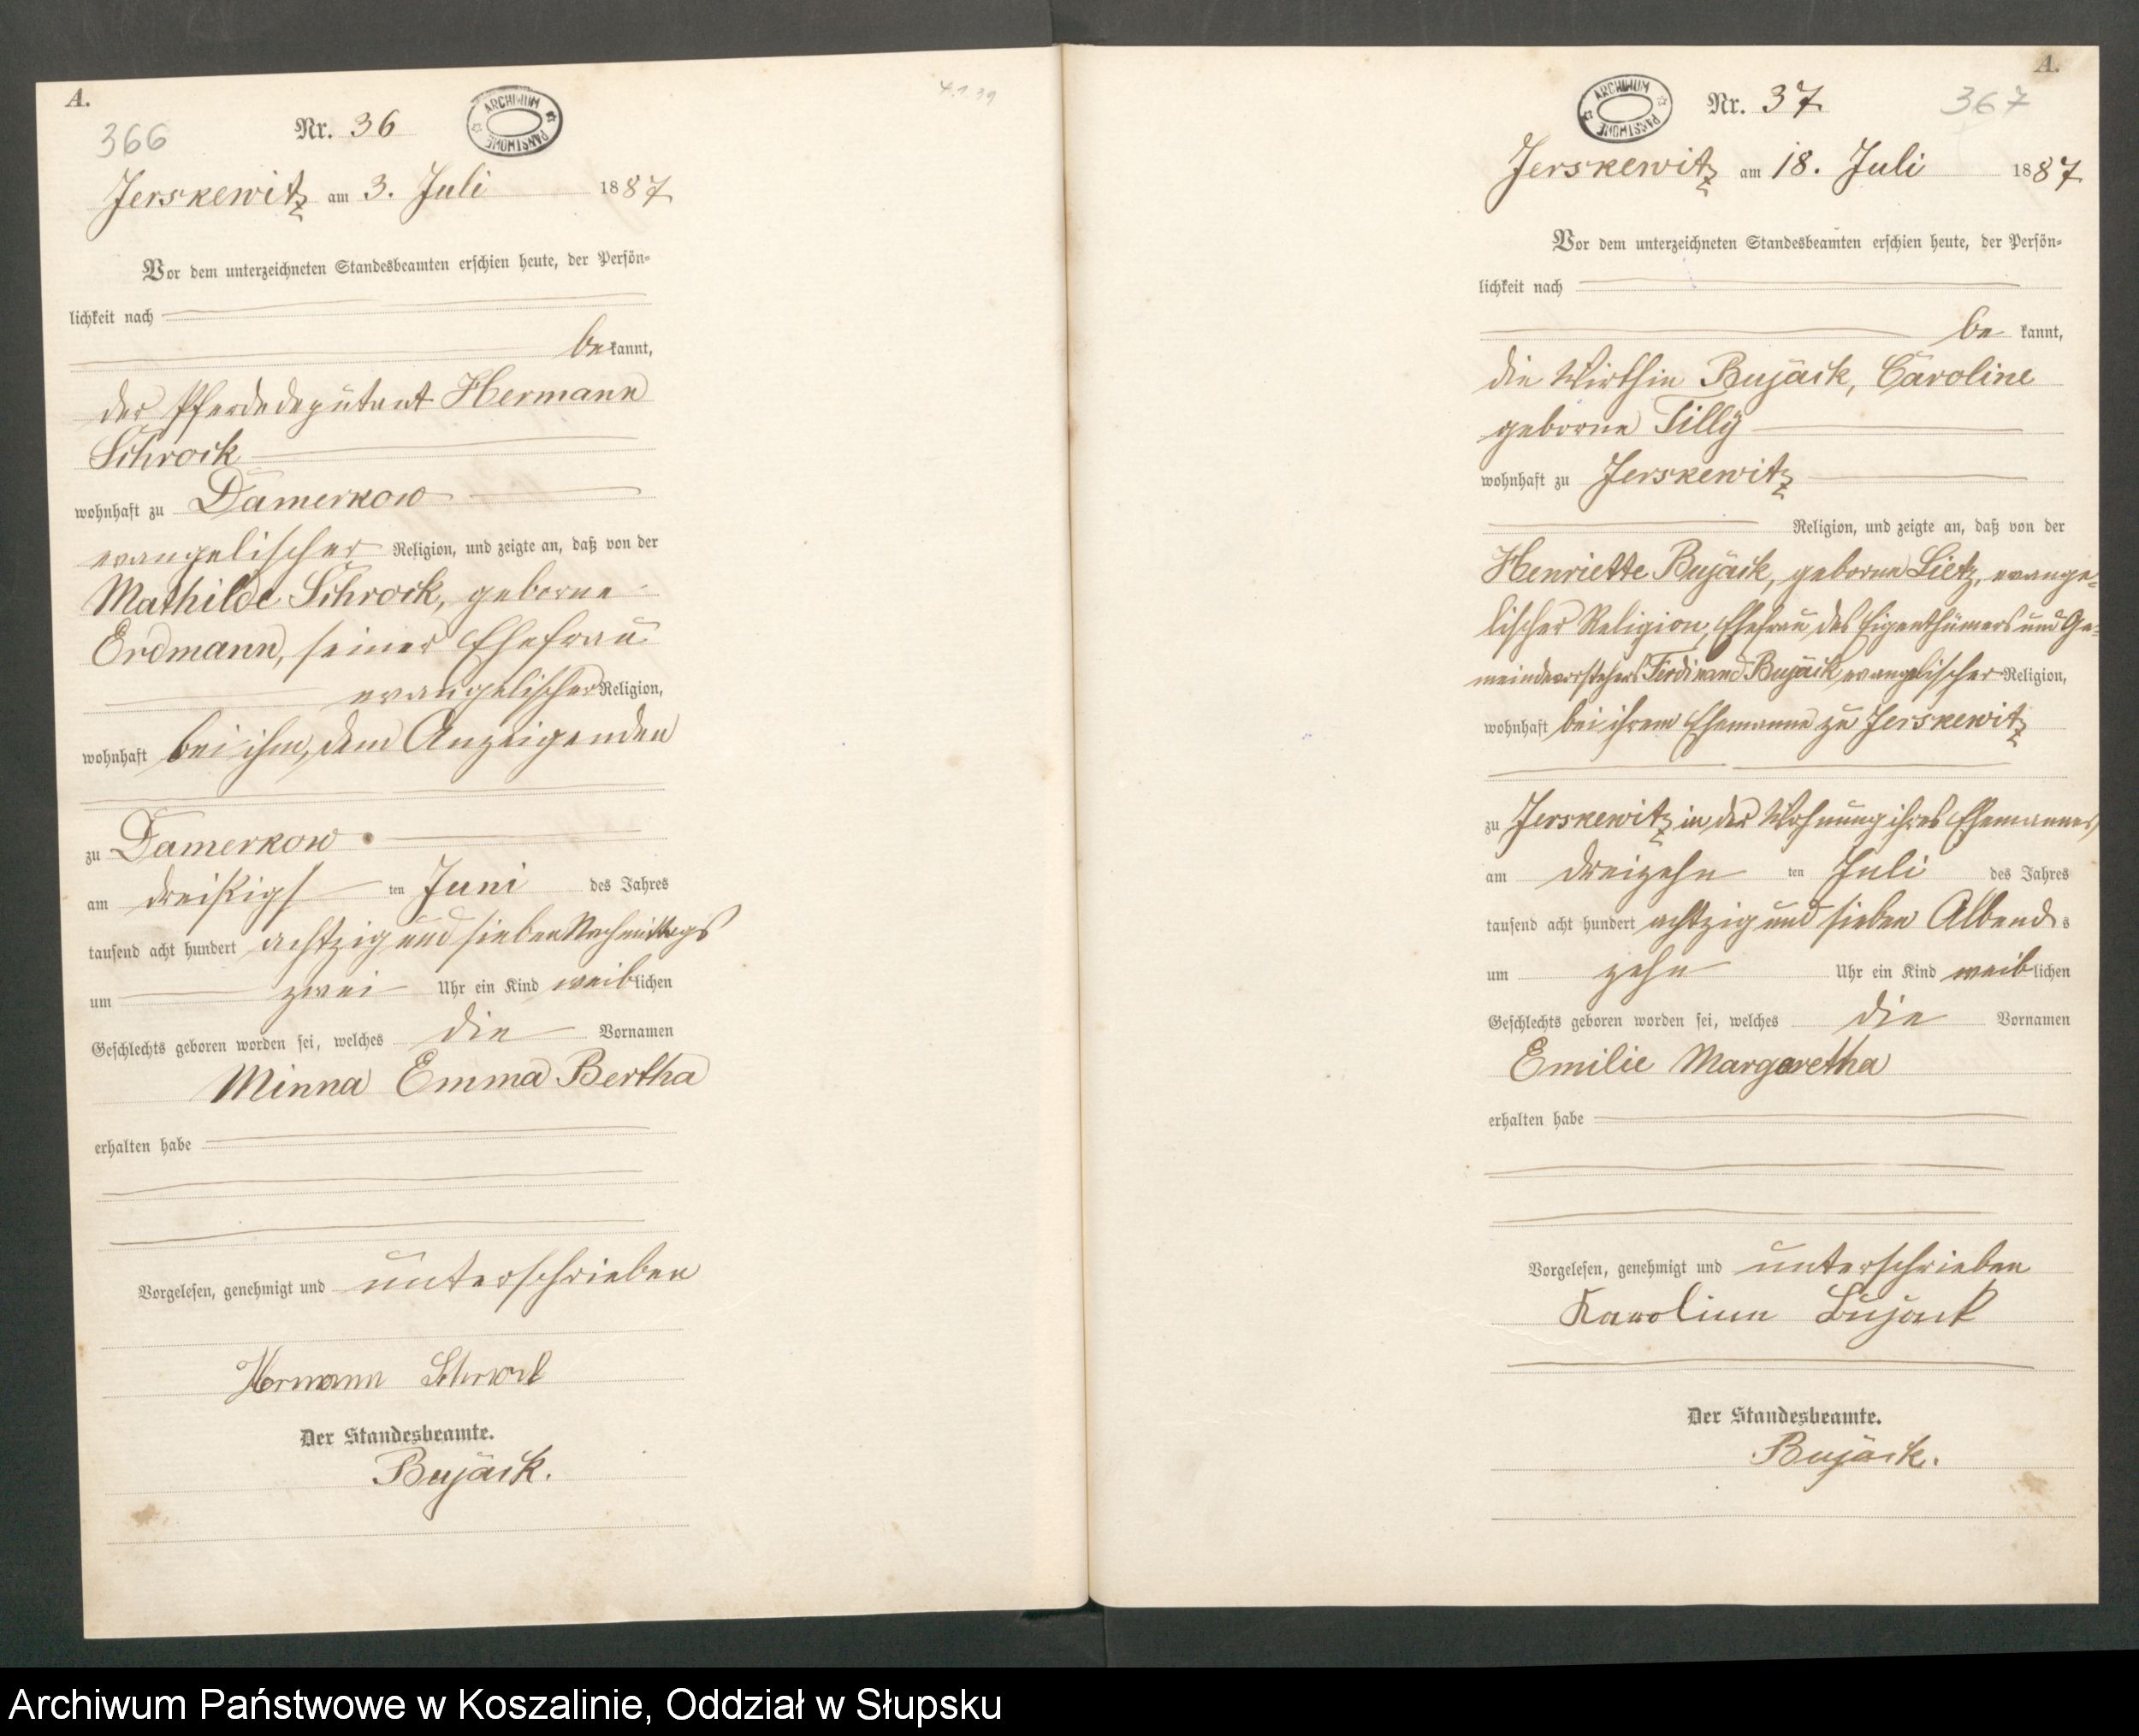 A.
366
Nr. 36
ARCHIWUM PAŃSTWOWE
4.1.39
Jerskewitz am 3. Juli 1887
Vor dem unterzeichneten Standesbeamten erschien heute, der Persön-
lichkeit nach
bekannt,
der Pferdedeputant Hermann
Schrock
wohnhaft zu Damerkow
evangelischer Religion, und zeigte an, daß von der
Mathilde Schrock, geborne
Erdmann, seiner Ehefrau
evangelischer Religion,
wohnhaft bei ihm, dem Anzeigenden
zu Damerkow
am dreißigsten Juni des Jahres
tausend acht hundert achtzig und sieben Nachmittags
um zwei Uhr ein Kind weiblichen
Geschlechts geboren worden sei, welches die Vornamen
Minna Emma Bertha
erhalten habe
Vorgelesen, genehmigt und unterschrieben
Hermann Schrock
Der Standesbeamte.
Bujack.
A.
367
ARCHIWUM PAŃSTWOWE
Nr. 37
Jerskewitz am 18. Juli 1887
Vor dem unterzeichneten Standesbeamten erschien heute, der Persön-
lichkeit nach
bekannt,
die Wirthin Bujack, Caroline
geborne Tilly
wohnhaft zu Jerskewitz
Religion, und zeigte an, daß von der
Henriette Bujack, geborne Lietz, evange-
lischer Religion, Ehefrau des Eigenthümers und Ge-
meindevorstehers Ferdinand Bujack evangelischer Religion,
wohnhaft bei ihrem Ehemanne zu Jerskewitz
zu Jerskewitz in der Wohnung ihres Ehemannes
am dreizehnten Juli des Jahres
tausend acht hundert achtzig und sieben Abends
um zehn Uhr ein Kind weiblichen
Geschlechts geboren worden sei, welches die Vornamen
Emilie Margaretha
erhalten habe
Vorgelesen, genehmigt und unterschrieben
Karoline Bujack
Der Standesbeamte.
Bujack.
Archiwum Państwowe w Koszalinie, Oddział w Słupsku